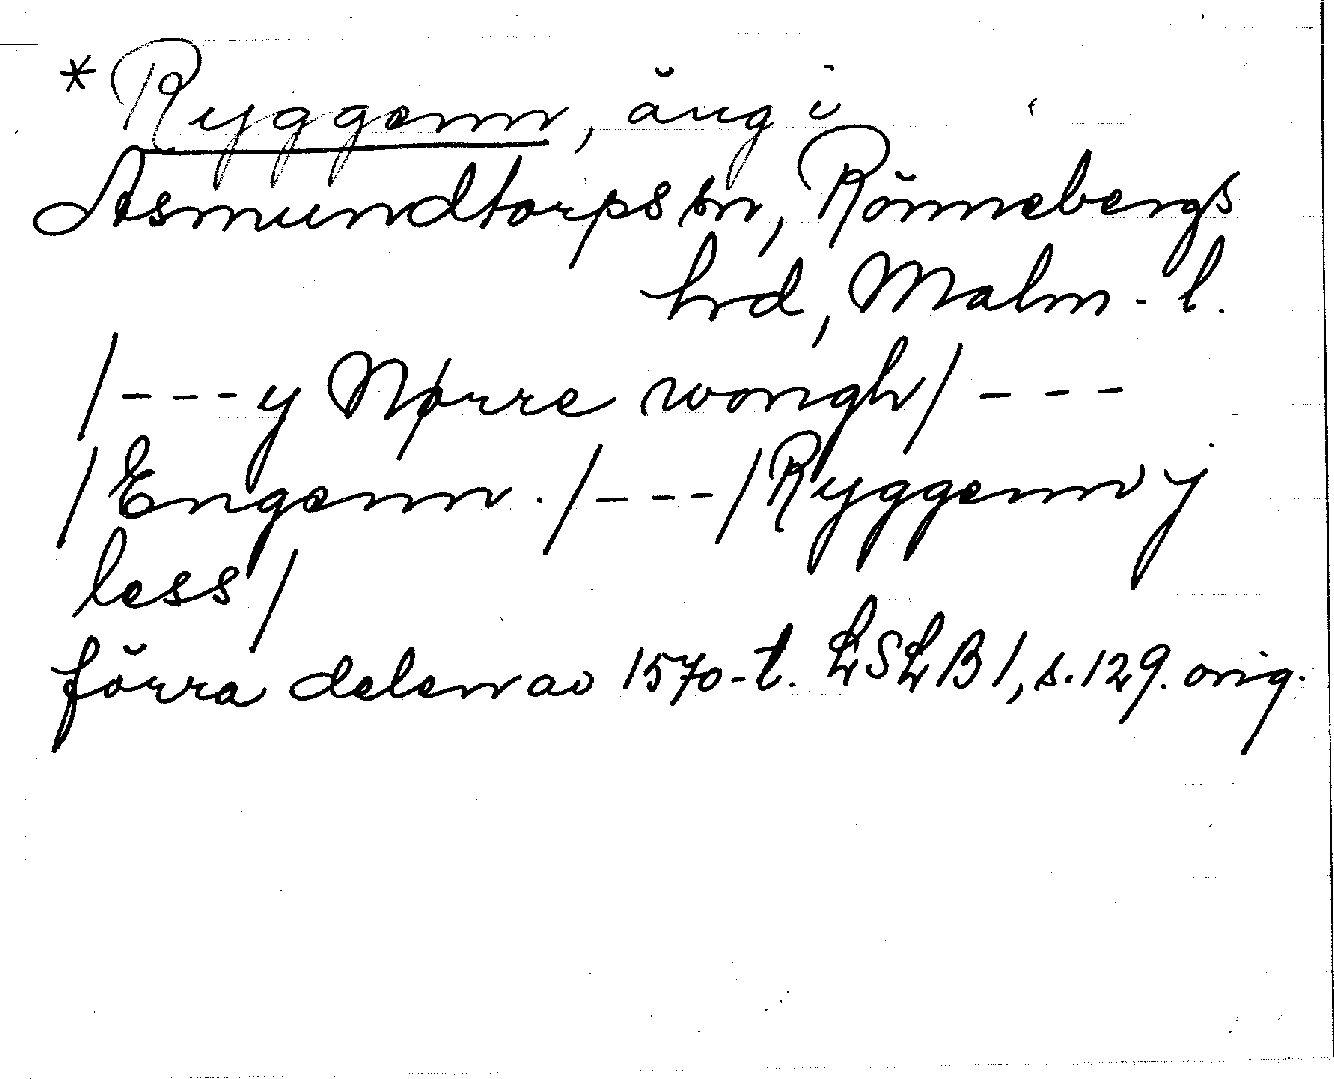 * Ryggenn, äng i
Asmundtorps sn, Rönnebergs
hrd, Malm-l.
/---y Nørre wongh/ ---
/Engenn ./---/Ryggenn y
less/
förra delen av 1570-t. LSLB 1, s.129. orig.